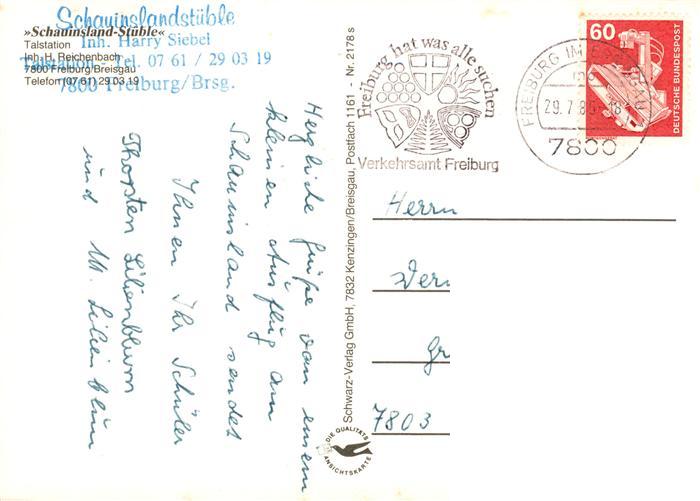 Schauinslandstüble
»Schauinsland-Stüble«
Talstation
Inh. Harry Siebel
Inh. H. Reichenbach
Talstation - Tel. 07 61 / 29 03 19
7800 Freiburg/Breisgau
7800 Freiburg/Brsg.
Telefon (07 61) 29 03 19
Herzliche Grüße von einem
kleinen Ausflug am
Schauinsland sendet
Ihnen Ihr Schüler
Thorsten Lilienblum
und M. Lilienblum
Schwarz-Verlag GmbH, 7832 Kenzingen/Breisgau, Postfach 1161 - Nr. 2178 s
DIE QUALITÄTS
ANSICHTSKARTE
Freiburg hat was alle suchen
Verkehrsamt Freiburg
FREIBURG IM
29.7.86-18
7800
60
DEUTSCHE BUNDESPOST
Herrn
7803